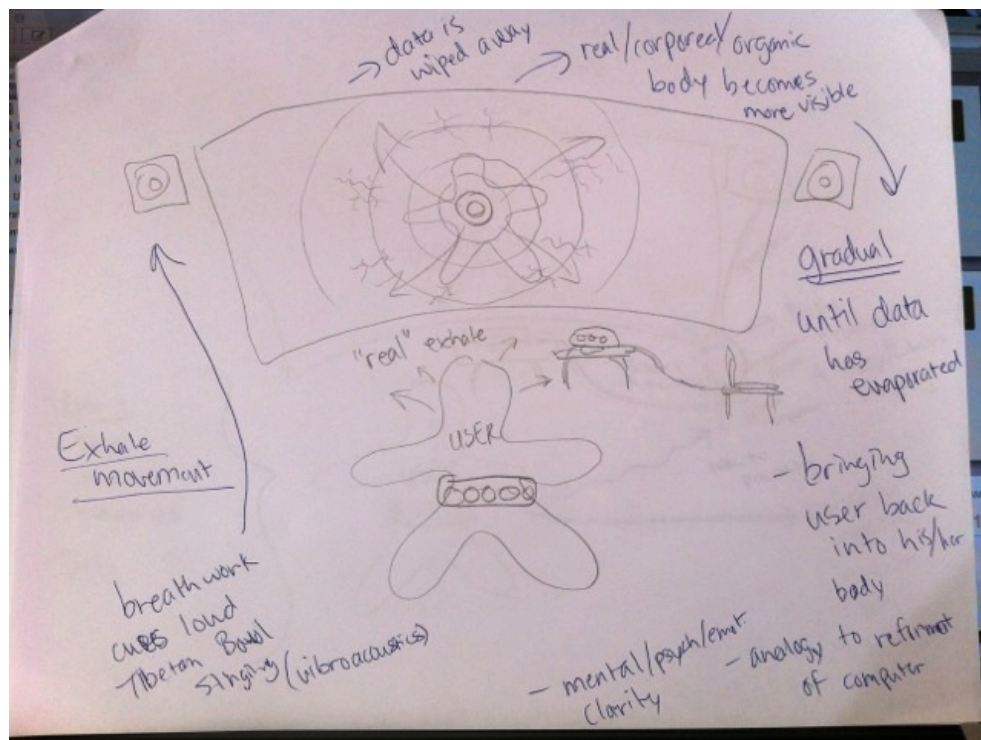 → data is
wiped away
→ real/corporeal/organic
body becomes
more visible
gradual
until data
has
evaporated
"real" exhale
USER
Exhale
movement
breathwork
cues loud
Tibetan Bowl
singing (vibroacoustics)
- bringing
user back
into his/her
body
- mental/psych/emot.
clarity
- analogy to reformat
of computer